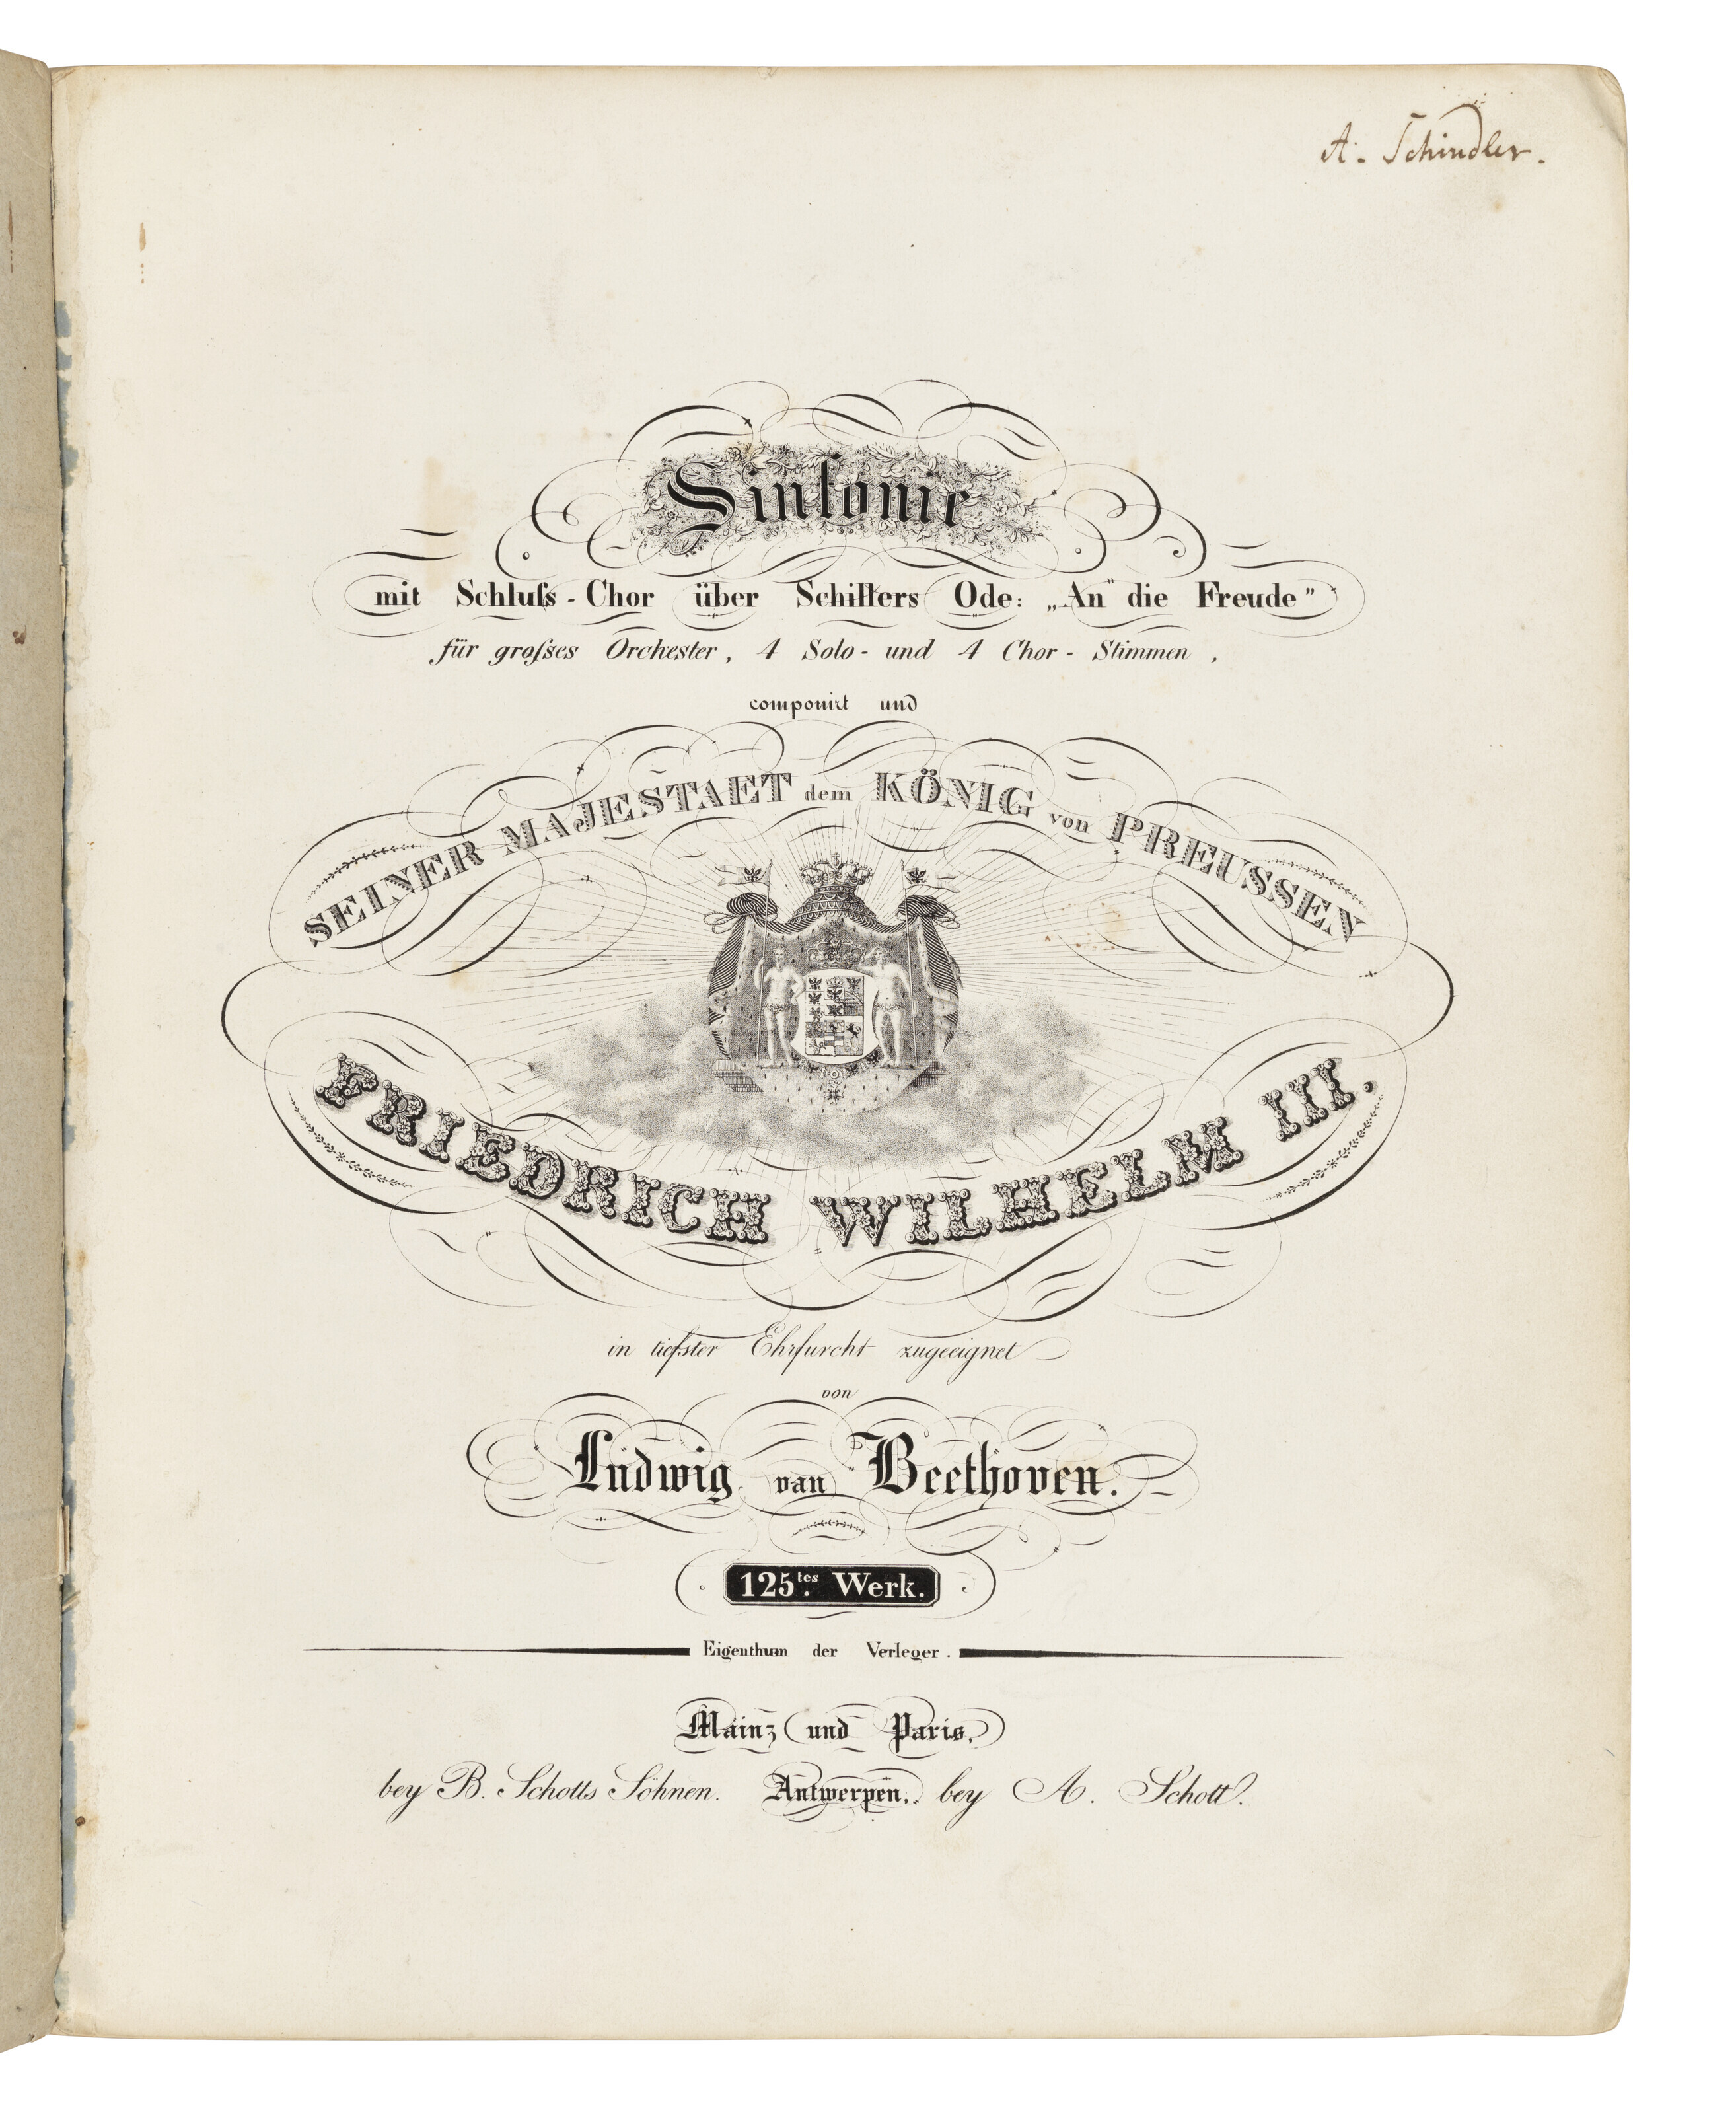 A. Schindler.
Sinfonie
mit Schluſs-Chor über Schillers Ode: „An die Freude”
für groſses Orchester, 4 Solo- und 4 Chor-Stimmen,
componirt und
SEINER MAJESTAET dem KÖNIG von PREUSSEN
FRIEDRICH WILHELM III.
in tiefster Ehrfurcht zugeeignet
von
Ludwig van Beethoven.
125tes. Werk.
Eigenthum der Verleger.
Mainz und Paris,
bey B. Schotts Söhnen. Antwerpen, bey A. Schott.